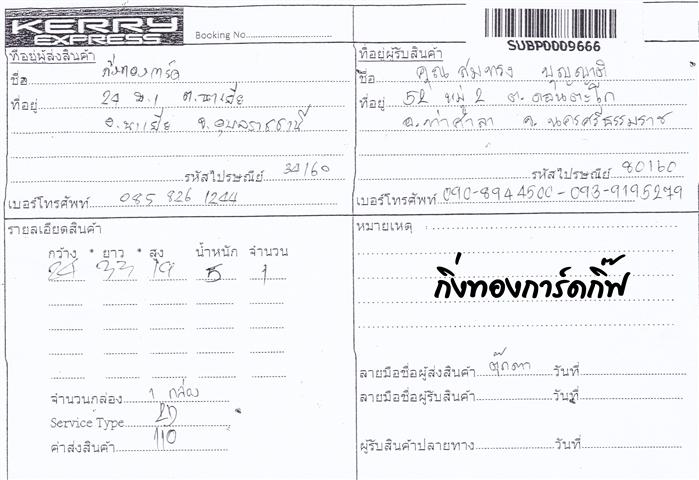 KERRY
EXPRESS
Booking No.
SUBP0009666
ที่อยู่ผู้ส่งสินค้า
ชื่อ กิ่งทองการ์ด
ที่อยู่ 24 ม.1 ต.นาเยีย
อ.นาเยีย จ.อุบลราชธานี
รหัสไปรษณีย์ 34160
เบอร์โทรศัพท์ 085 826 1244
ที่อยู่ผู้รับสินค้า
ชื่อ คุณ สมทรง บุญญาติ
ที่อยู่ 52 หมู่ 2 ต. ดอนตะโก
อ.ท่าศาลา จ. นครศรีธรรมราช
รหัสไปรษณีย์ 80160
เบอร์โทรศัพท์ 090-8944500-093-9195279
รายละเอียดสินค้า
กว้าง * ยาว * สูง น้ำหนัก จำนวน
24 33 19 5 1
จำนวนกล่อง 1 กล่อง
Service Type 2D
ค่าส่งสินค้า 110
หมายเหตุ :
กิ่งทองการ์ดกิ๊ฟ
ลายมือชื่อผู้ส่งสินค้า ตุ๊กตา วันที่
ลายมือชื่อผู้รับสินค้า วันที่
ผู้รับสินค้าปลายทาง วันที่